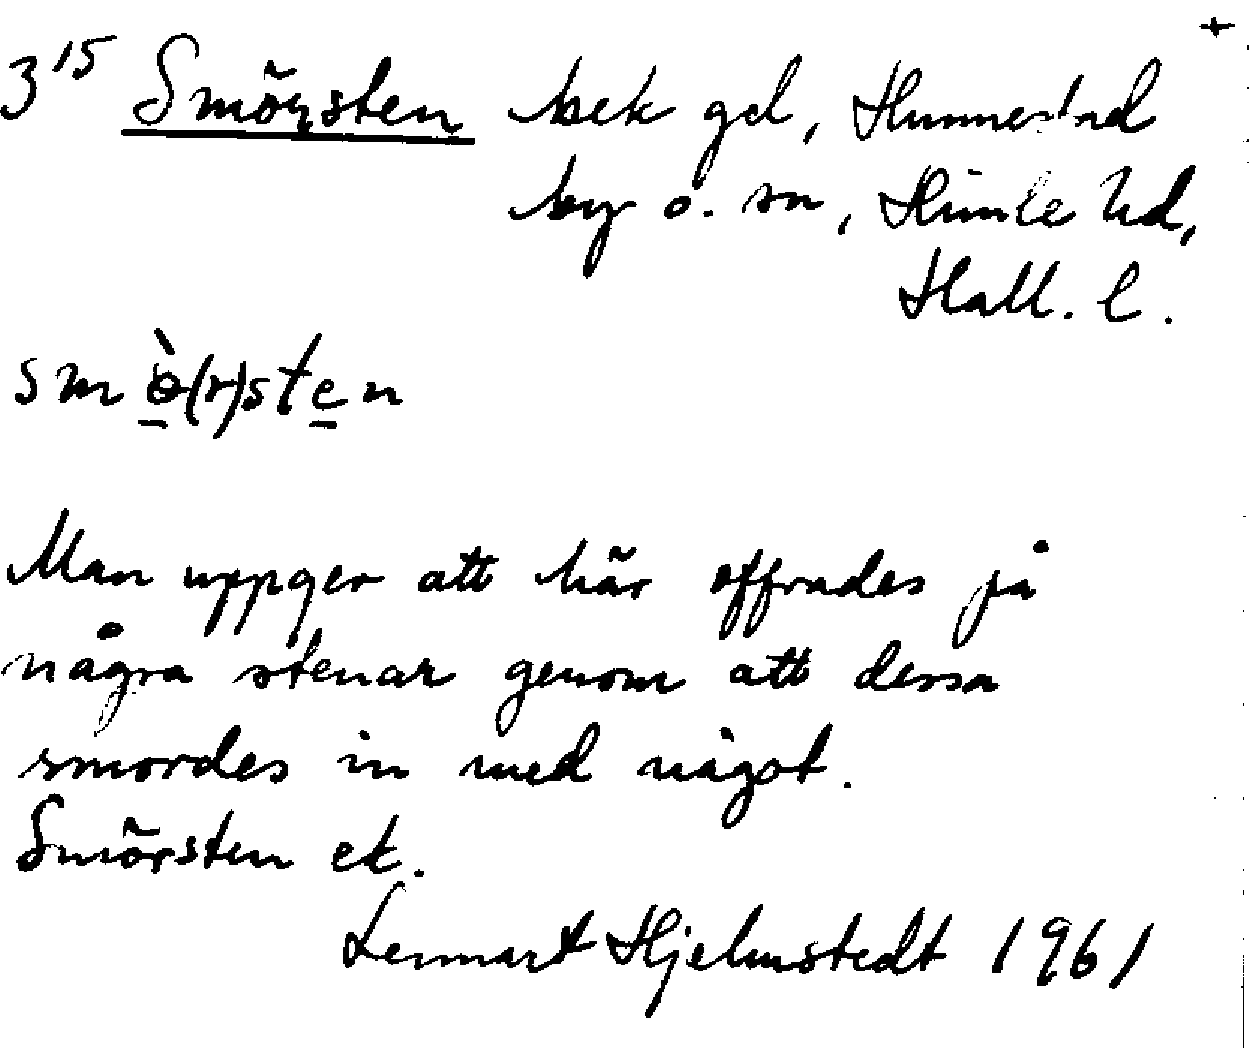 +
3¹⁵ Smörsten bek gd, Hunnestad
by o. sn, Himle hd,
Hall. l.
smɵ̠̀(r)ste̠n
Man uppger att här offrades på
några stenar genom att dessa
smordes in med något.
Smörsten ek.
Lennart Hjelmstedt 1961